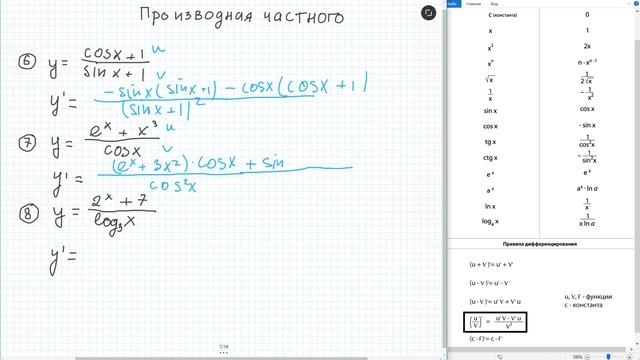 Производная частного
⑥ y = (cosx + 1) u / (sinx + 1) v
y' = (-sinx(sinx+1) - cosx(cosx+1)) / (sinx+1)²
⑦ y = (eˣ + x³) u / cosx v
y' = ((eˣ + 3x²)·cosx + sin) / cos²x
⑧ y = (2ˣ + 7) / log₃x
y' =
7/19
Файл
C (константа) 0
x 1
x² 2x
xⁿ n·xⁿ⁻¹
√x 1/(2√x)
1/x -1/x²
sin x cos x
cos x - sin x
tg x 1/cos²x
ctg x -1/sin²x
eˣ eˣ
aˣ aˣ·ln a
ln x 1/x
logₐx 1/(x ln a)
Правила дифференцирования
(u + V)' = u' + V'
(u - V)' = u' - V'
(u · V)' = u'V + V'u
u, V, F - функции
c - константа
(u/V)' = (u'V - V'u)/V²
(c · F)' = c · F'
100%